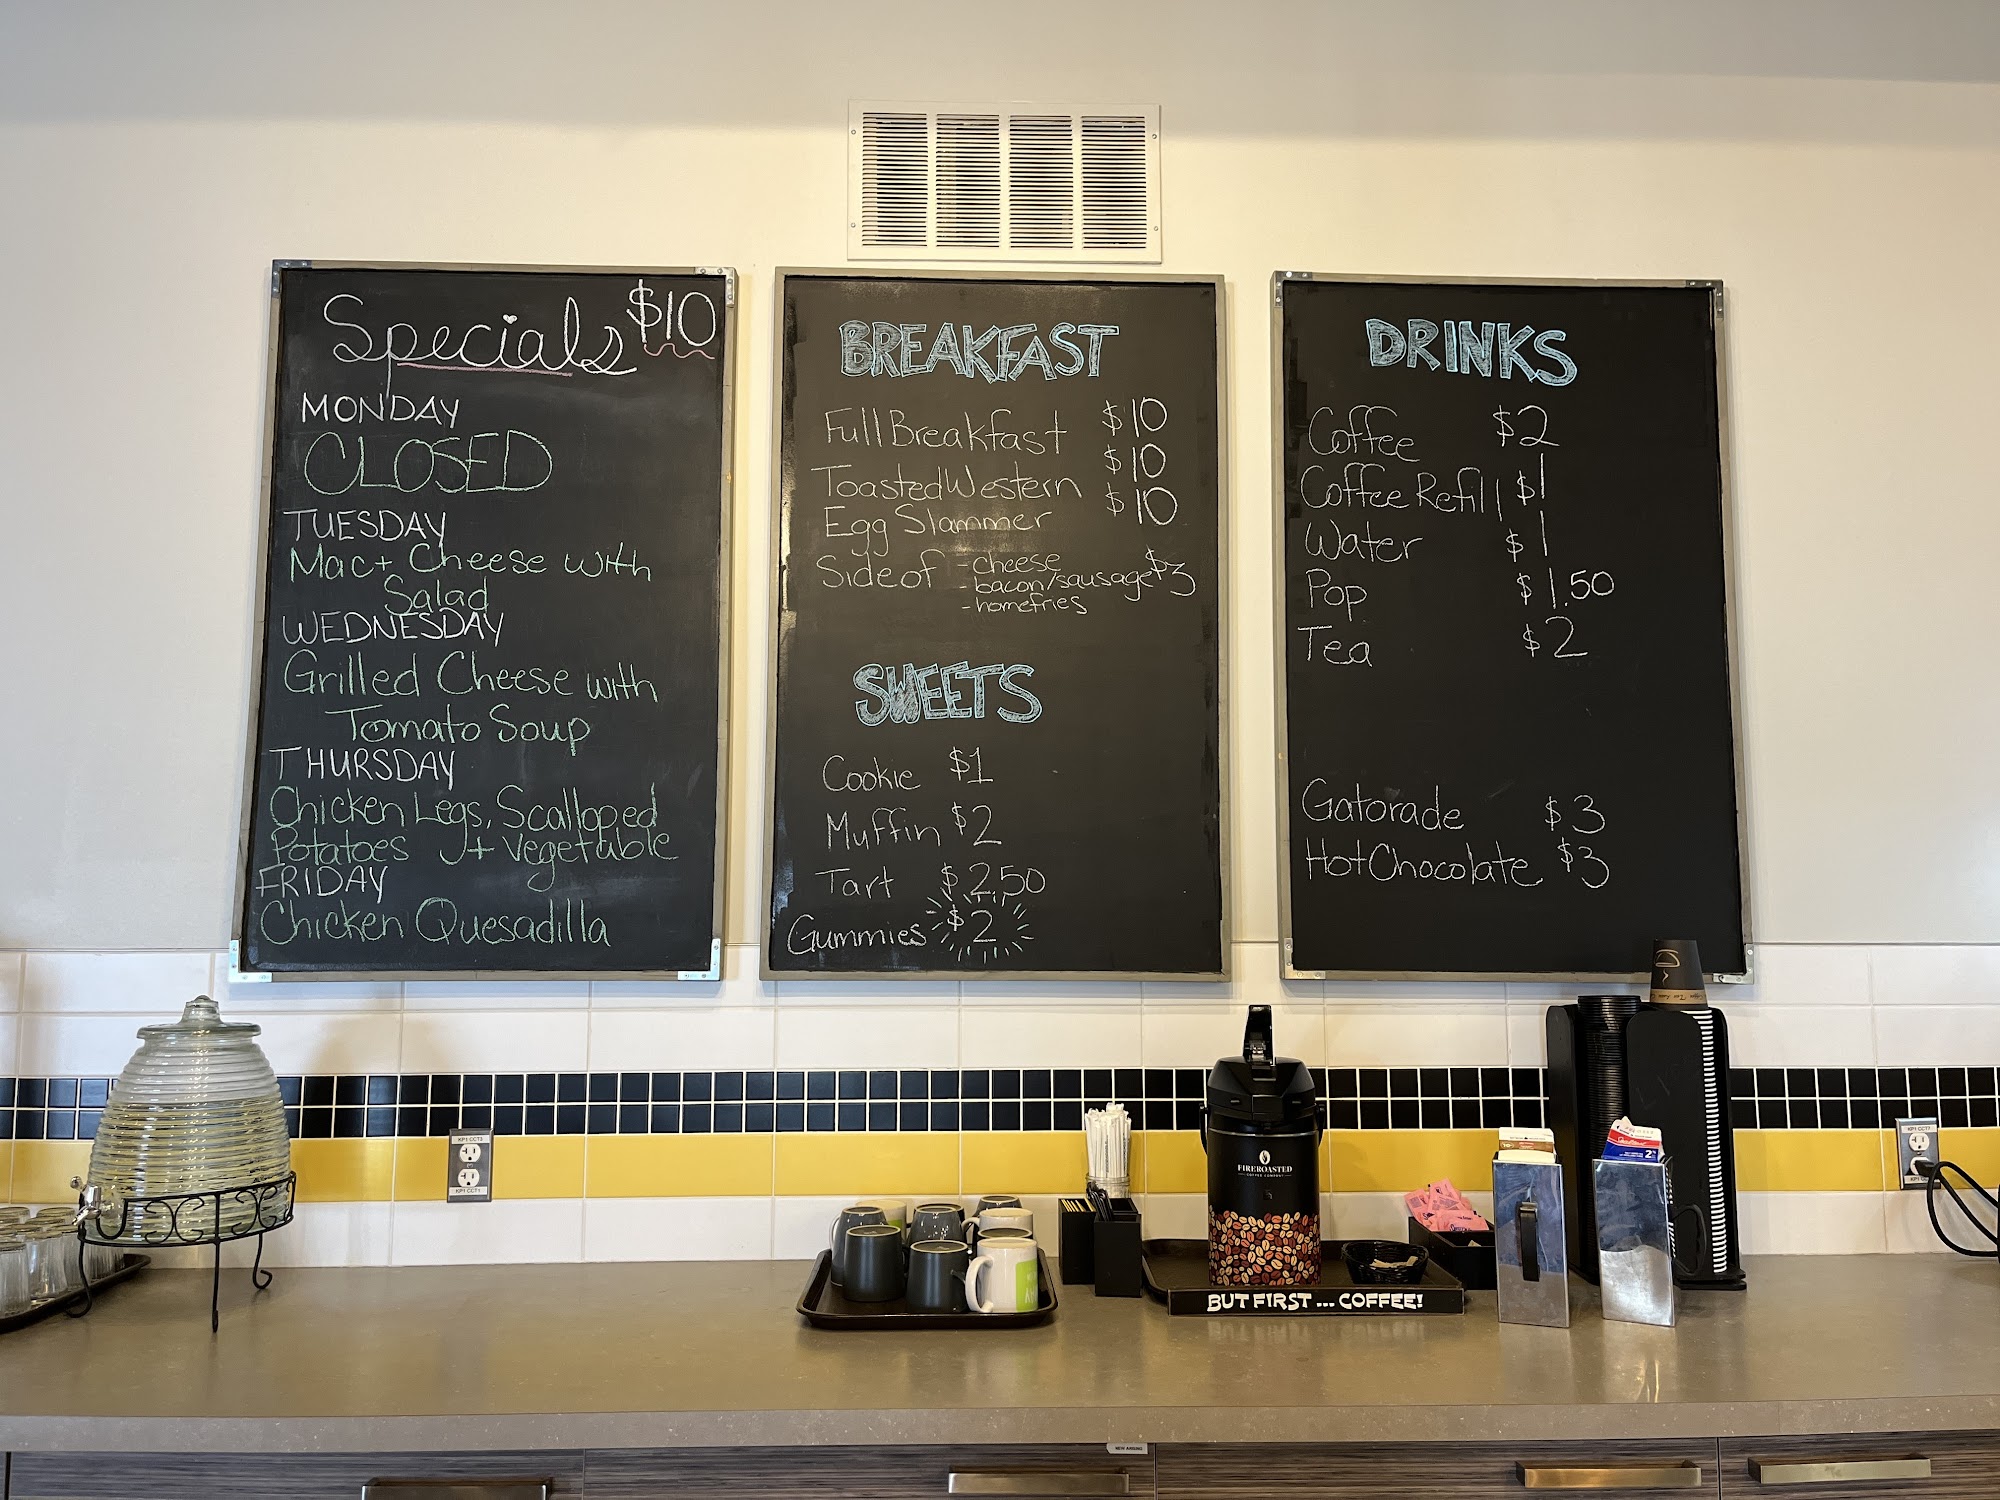 Specials $10
MONDAY
CLOSED
TUESDAY
Mac + Cheese with
Salad
WEDNESDAY
Grilled Cheese with
Tomato Soup
THURSDAY
Chicken Legs, Scalloped
Potatoes + Vegetable
FRIDAY
Chicken Quesadilla
BREAKFAST
Full Breakfast $10
Toasted Western $10
Egg Slammer $10
Side of - cheese
- bacon/sausage $3
- homefries
SWEETS
Cookie $1
Muffin $2
Tart $2.50
Gummies $2
DRINKS
Coffee $2
Coffee Refill $1
Water $1
Pop $1.50
Tea $2
Gatorade $3
Hot Chocolate $3
FIREROASTED
COFFEE COMPANY
BUT FIRST ... COFFEE!
KP1 CCT3
KP1 CCT1
KP1 CCT7
2%